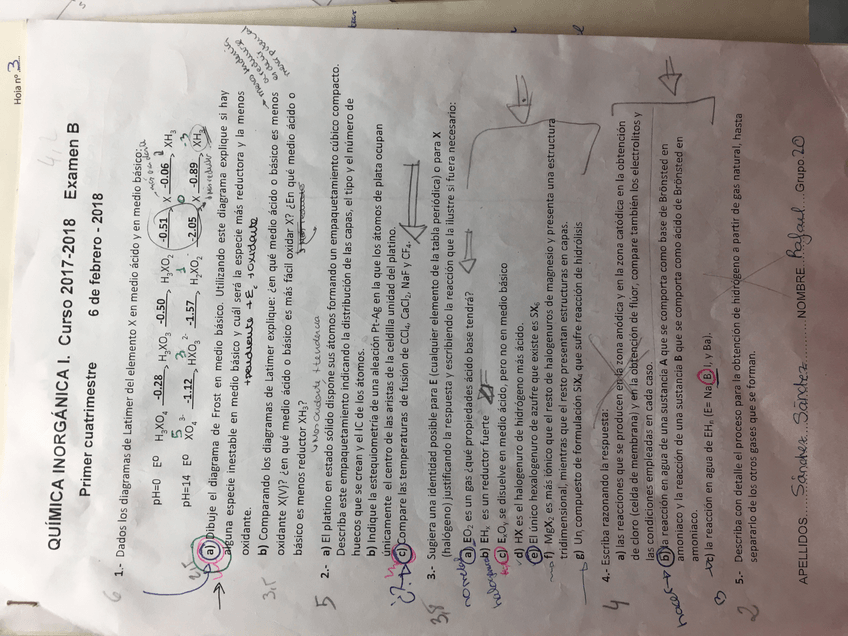 Hoja nº 3
QUÍMICA INORGÁNICA I. Curso 2017-2018 Examen B
Primer cuatrimestre 6 de febrero - 2018
6
1.- Dados los diagramas de Latimer del elemento X en medio ácido y en medio básico:
pH=0 Eº H₃XO₄ -0.28 H₂XO₃ -0.50 H₃XO₂ -0.51 X -0.06 XH₃
pH=14 Eº XO₄³⁻ -1.12 HXO₃²⁻ -1.57 H₂XO₂⁻ -2.05 X -0.89 XH₃
a) Dibuje el diagrama de Frost en medio básico. Utilizando este diagrama explique si hay
alguna especie inestable en medio básico y cuál será la especie más reductora y la menos
oxidante.
b) Comparando los diagramas de Latimer explique: ¿en qué medio ácido o básico es menos
oxidante X(V)? ¿en qué medio ácido o básico es más fácil oxidar X? ¿En qué medio ácido o
básico es menos reductor XH₃?
3.5
5
2.- a) El platino en estado sólido dispone sus átomos formando un empaquetamiento cúbico compacto.
Describa este empaquetamiento indicando la distribución de las capas, el tipo y el número de
huecos que se crean y el IC de los átomos.
b) Indique la estequiometría de una aleación Pt-Ag en la que los átomos de plata ocupan
únicamente el centro de las aristas de la celdilla unidad del platino.
c) Compare las temperaturas de fusión de CCl₄, CaCl₂, NaF y CF₄.
3.- Sugiera una identidad posible para E (cualquier elemento de la tabla periódica) o para X
(halógeno) justificando la respuesta y escribiendo la reacción que la ilustre si fuera necesario:
a) EO₂ es un gas ¿qué propiedades ácido base tendrá?
b) EHₓ es un reductor fuerte
c) EₓOᵧ se disuelve en medio ácido, pero no en medio básico
d) HX es el halogenuro de hidrógeno más ácido.
e) El único hexahalogenuro de azufre que existe es SX₆
f) MgX₂ es más iónico que el resto de halogenuros de magnesio y presenta una estructura
tridimensional, mientras que el resto presentan estructuras en capas.
g) Un compuesto de formulación SiX₄ que sufre reacción de hidrólisis
4
4.- Escriba razonando la respuesta:
a) las reacciones que se producen en la zona anódica y en la zona catódica en la obtención
de cloro (celda de membrana) y en la obtención de flúor, compare también los electrolitos y
las condiciones empleadas en cada caso.
b) la reacción en agua de una sustancia A que se comporta como base de Brönsted en
amoniaco y la reacción de una sustancia B que se comporta como ácido de Brönsted en
amoniaco.
c) la reacción en agua de EHₙ (E= Na, B, I, y Ba).
2
5.- Describa con detalle el proceso para la obtención de hidrógeno a partir de gas natural, hasta
separarlo de los otros gases que se forman.
APELLIDOS Sánchez Sánchez NOMBRE Rafael Grupo 20